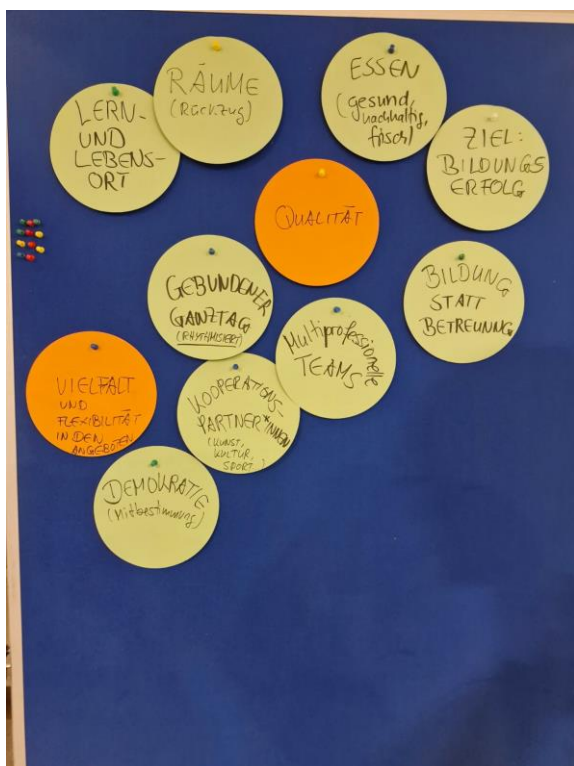 LERN-
UND
LEBENS-
ORT
RÄUME
(Rückzug)
ESSEN
(gesund,
nachhaltig,
frisch)
ZIEL:
BILDUNGS
ERFOLG
QUALITÄT
GEBUNDENER
GANZTAG
(RHYTHMISIERT)
BILDUNG
STATT
BETREUUNG
Multiprofessionelle
TEAMS
VIELFALT
UND
FLEXIBILITÄT
IN DEN
ANGEBOTEN
KOOPERATIONS-
PARTNER*INNEN
(KUNST,
KULTUR,
SPORT)
DEMOKRATIE
(Mitbestimmung)